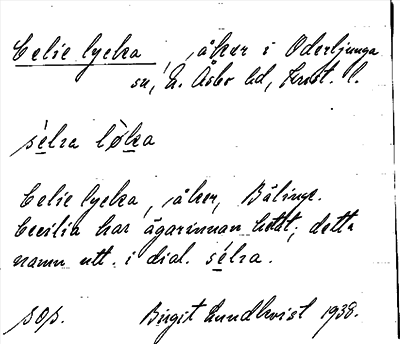 Celie lycka, åker i Oderljunga
sn, N. Åsbo hd, Krist. l.
Celie lycka, åker, Bälinge.
Cecilia har ägarinnan hetat; detta
namn utt. i dial.
sos. Birgit Lundkvist 1938.